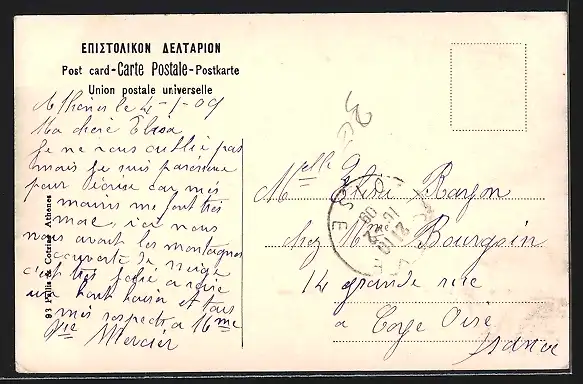 ΕΠΙΣΤΟΛΙΚΟΝ ΔΕΛΤΑΡΙΟΝ
Post card-Carte Postale-Postkarte
Union postale universelle
Athènes le 4-1-09
Ma chère Elisa
Je ne vous oublie pas
mais je suis paresseuse
pour écrire car mes
mains me font très
mal, ici nous
nous avont les montagnes
couverte de neige
c'est très jolie a voir
un bont baisé et tous
mes respects a Mme
Vve Mercier
93 Pallis & Cotzias Athenes
Melle Elisa Rayon
chez Mme Bourgoin
14 grande rue
a Coye Oise
France